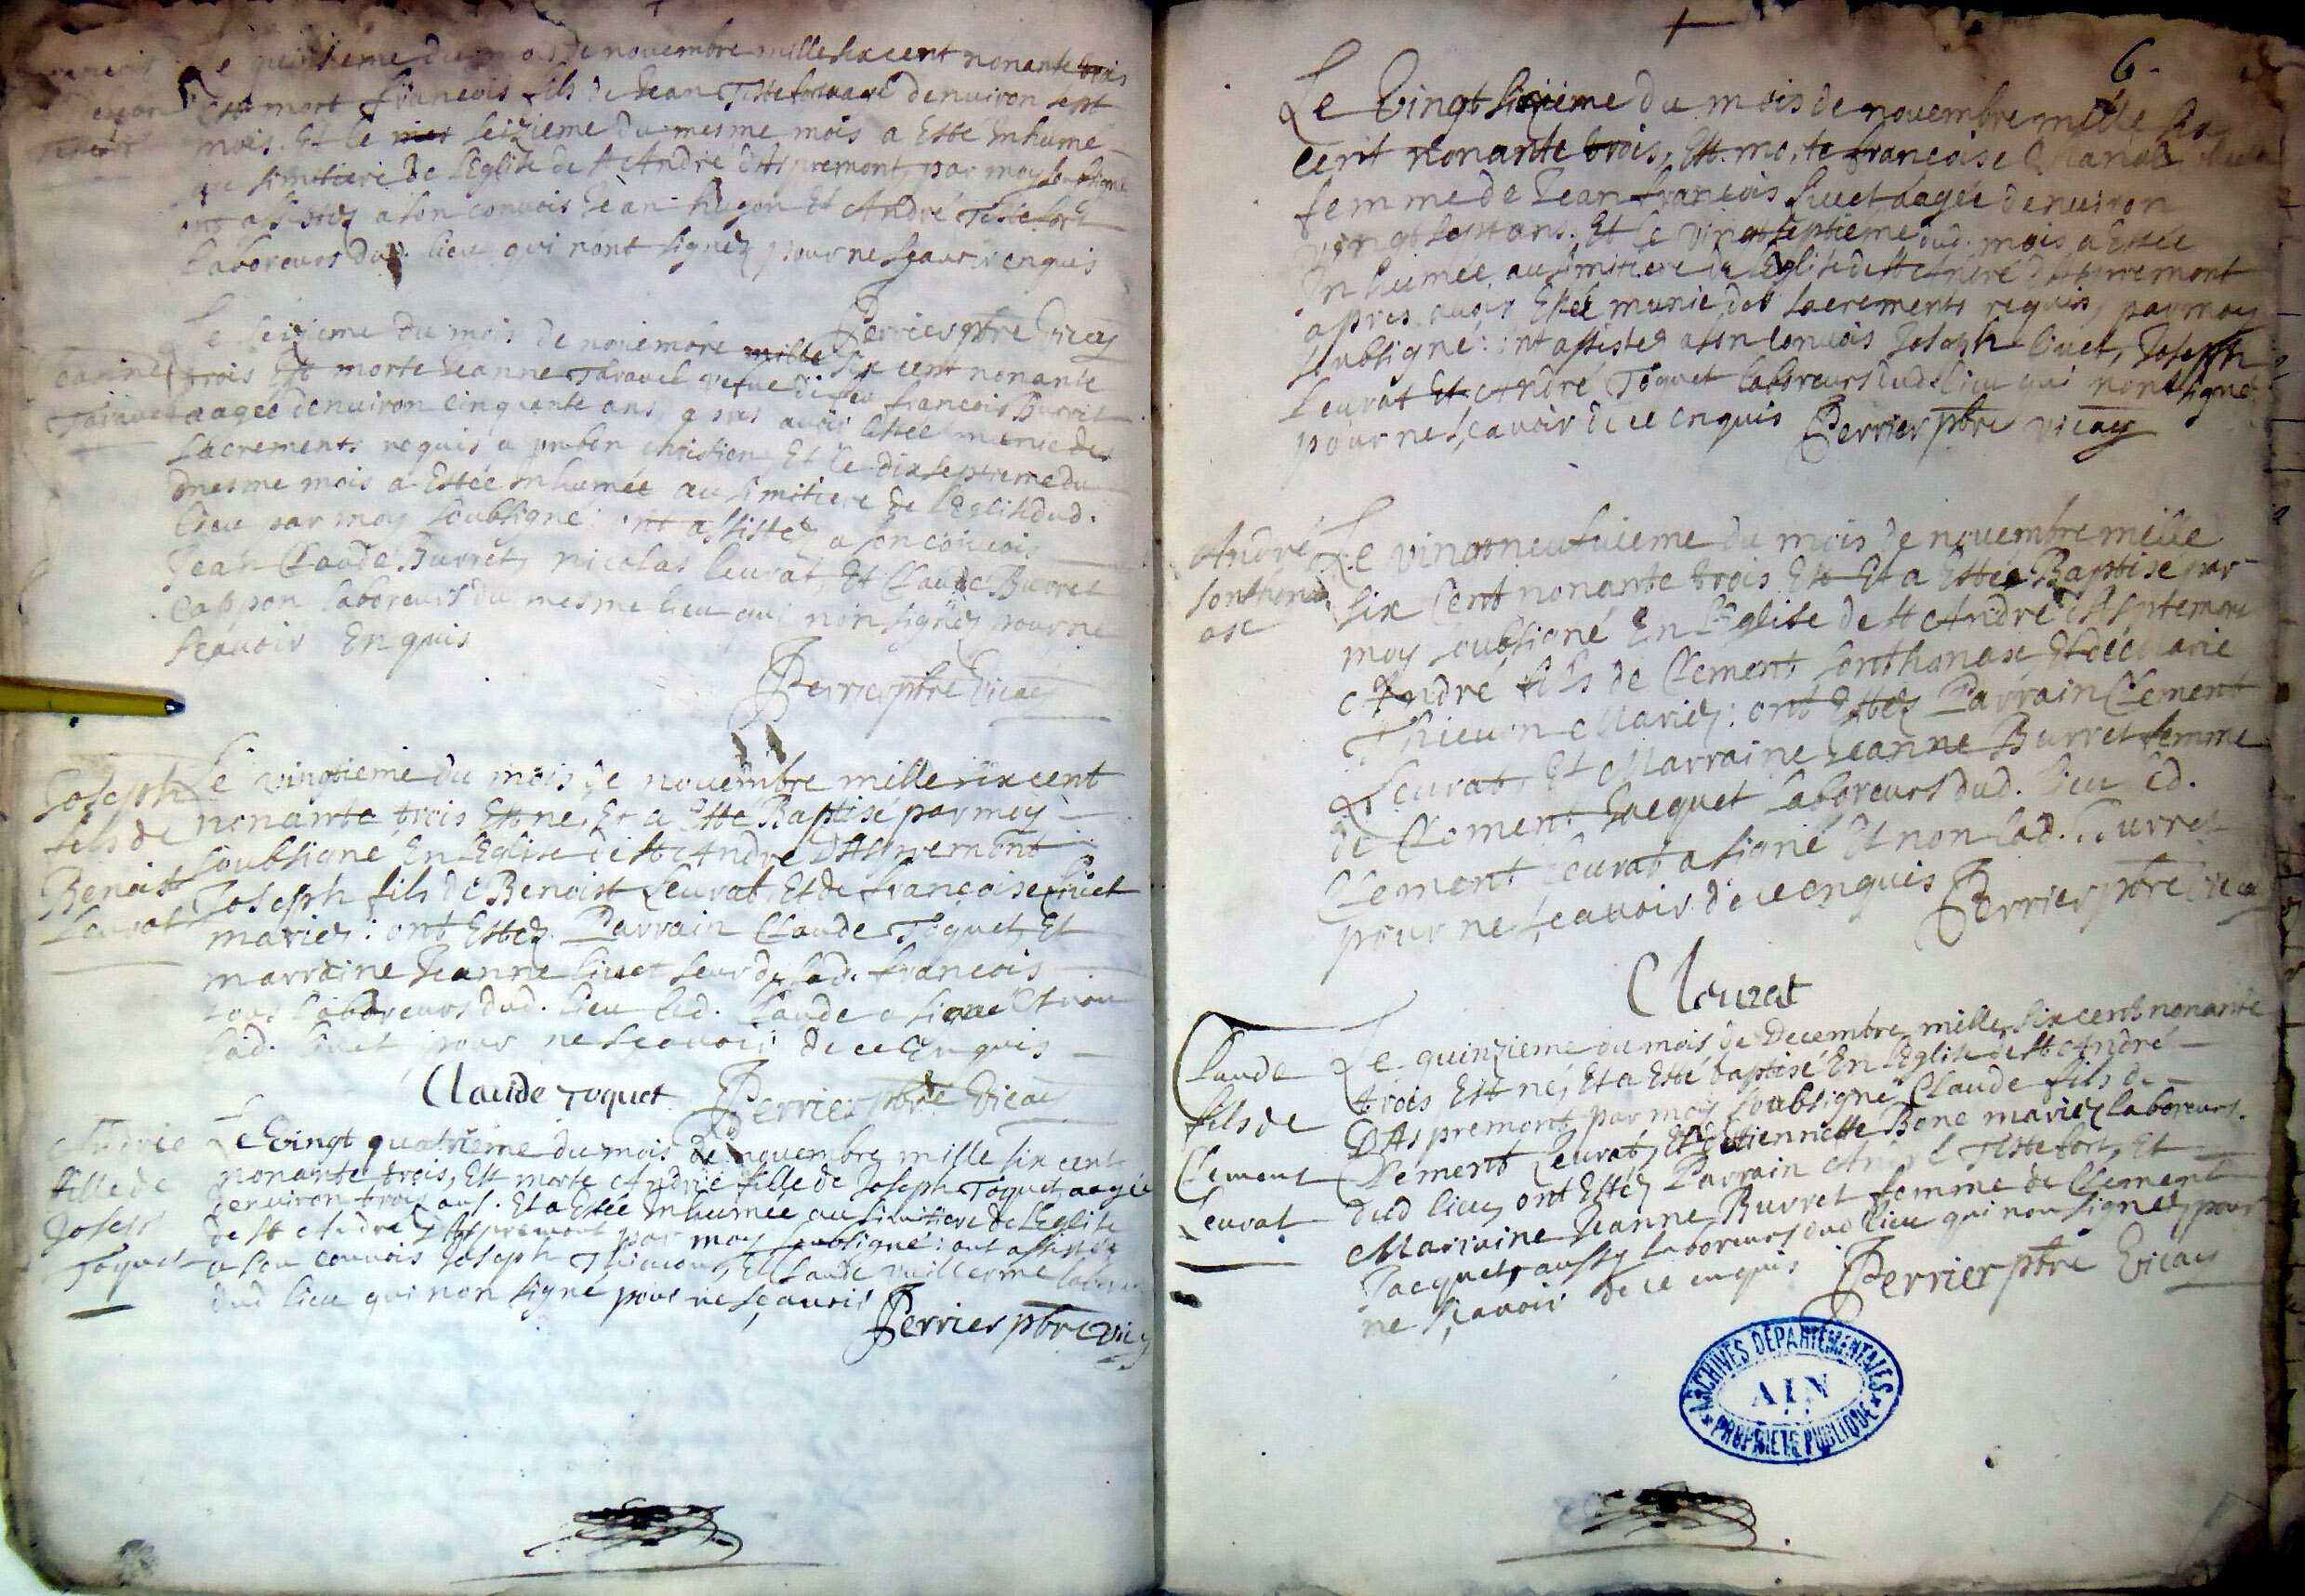 Le quinzieme du mois de novembre mille six cent nonante trois
est mort francois fils de Jean Testefort aagé denuiron sept
mois. Et le seizieme du mesme mois a Esté Inhumé
au simitiere de l'Eglise de st André d'Aspremont par moy soubsigné
ont assistez a son convois Jean hugon Et André Testefort
laboreurs dud. lieu qui n'ont signez pour ne sçauoir enquis
Perrier pbre vicay
Jeanne
Tarauel
Le seizieme du mois de nouembre mille six cent nonante
trois Est morte Jeanne Tarauel vefue de feu francois Burret
aagée denuiron cinquante ans apres auoir Estée munie des
sacrements requis a un bon chrestien, Et le dixseptieme du
mesme mois a Estée Inhumée au simitiere de l'Eglise dud.
lieu par moy soubsigné: ont assistez a son conuois
Jean Claude Burret, nicolas leurat, Et Claude Burret
laboreurs du mesme lieu qui n'on signez pour ne
sçauoir Enquis
Perrier pbre Vicay
Joseph
fils de
Benoist
Leurat
Le vingtieme du mois de novembre mille six cent
nonante trois Est ne, Et a Esté Baptisé par moy
soubsigné En l'Eglise de st André D'Aspremont
Joseph fils de Benoist Leurat, Et de françoise liuet
mariez: ont Estez Parrain Claude Toquet, Et
marraine Jeanne liuet seur de lad. francois
tous laboreurs dud. lieu led. Claude a signé Et non
lad. liuet pour ne sçauoir de ce Enquis
Claude Toquet Perrier pbre Vicay
Andrie
fille de
Joseph
Toquet
Le vingt quatrieme du mois de novembre mille six cent
nonante trois, Est morte Andrie fille de Joseph Toquet aagée
denuiron trois ans. Et a Estée Inhumée au simitiere de l'Eglise
de st André D'Aspremont par moy soubsigné: ont assistez
a son conuois Joseph Thieuon, Et Claude Vuillerme
dud lieu qui non signé pour ne sçauoir
Perrier pbre vicay
6.
Le Vingt sixieme du mois de novembre mille six
cent nonante trois, Est morte francoise
femme de Jean francois liuet aagée denuiron
vingt sept ans. Et le vingt septieme dud. mois a Estée
Inhumée au simitiere de l'Eglise de st André d'Aspremont
apres auoir Estée munie des sacrements requis, par moy
soubsigné: ont assistez a son conuois Joseph liuet, Joseph
leurat Et André Toquet laboreurs dud. lieu qui n'ont signé
pour ne sçavoir de ce enquis Perrier pbre vicay
André
Sonthonax
Le vingt neufuieme du mois de novembre mille
six Cent nonante trois Est Et a Estée Baptise par
moy soubsigné En l'Eglise de st André d'Aspremont
André fils de Clement Sonthonax Et de Marie
Thieuon Mariez: ont Estez Parrain Clement
Leurat, Et Marraine Jeanne Burret femme
de Clement Jacquet laboreurs dud. lieu led.
Clement Leurat a signé Et non lad. Burret
pour ne sçauoir de ce enquis Perrier pbre Vicay
C leurat
Claude
fils de
Clement
Leurat
Le quinzieme du mois de Decembre mille six cent nonante
trois Est né, Et a Esté baptisé En l'Eglise de st André
D'Aspremont par moy soubsigné Claude fils de
Clement Leurat, Et Etiennette Bone mariez laboreurs
dud lieu, ont Estez Parrain André Testefort, Et
Marraine Jeanne Burret femme de Clement
Jacquet, aussy laboreurs dud lieu qui non signez pour
ne sçavoir de ce enquis Perrier pbre Vicay
ARCHIVES DEPARTEMENTALES
AIN
PROPRIETE PUBLIQUE